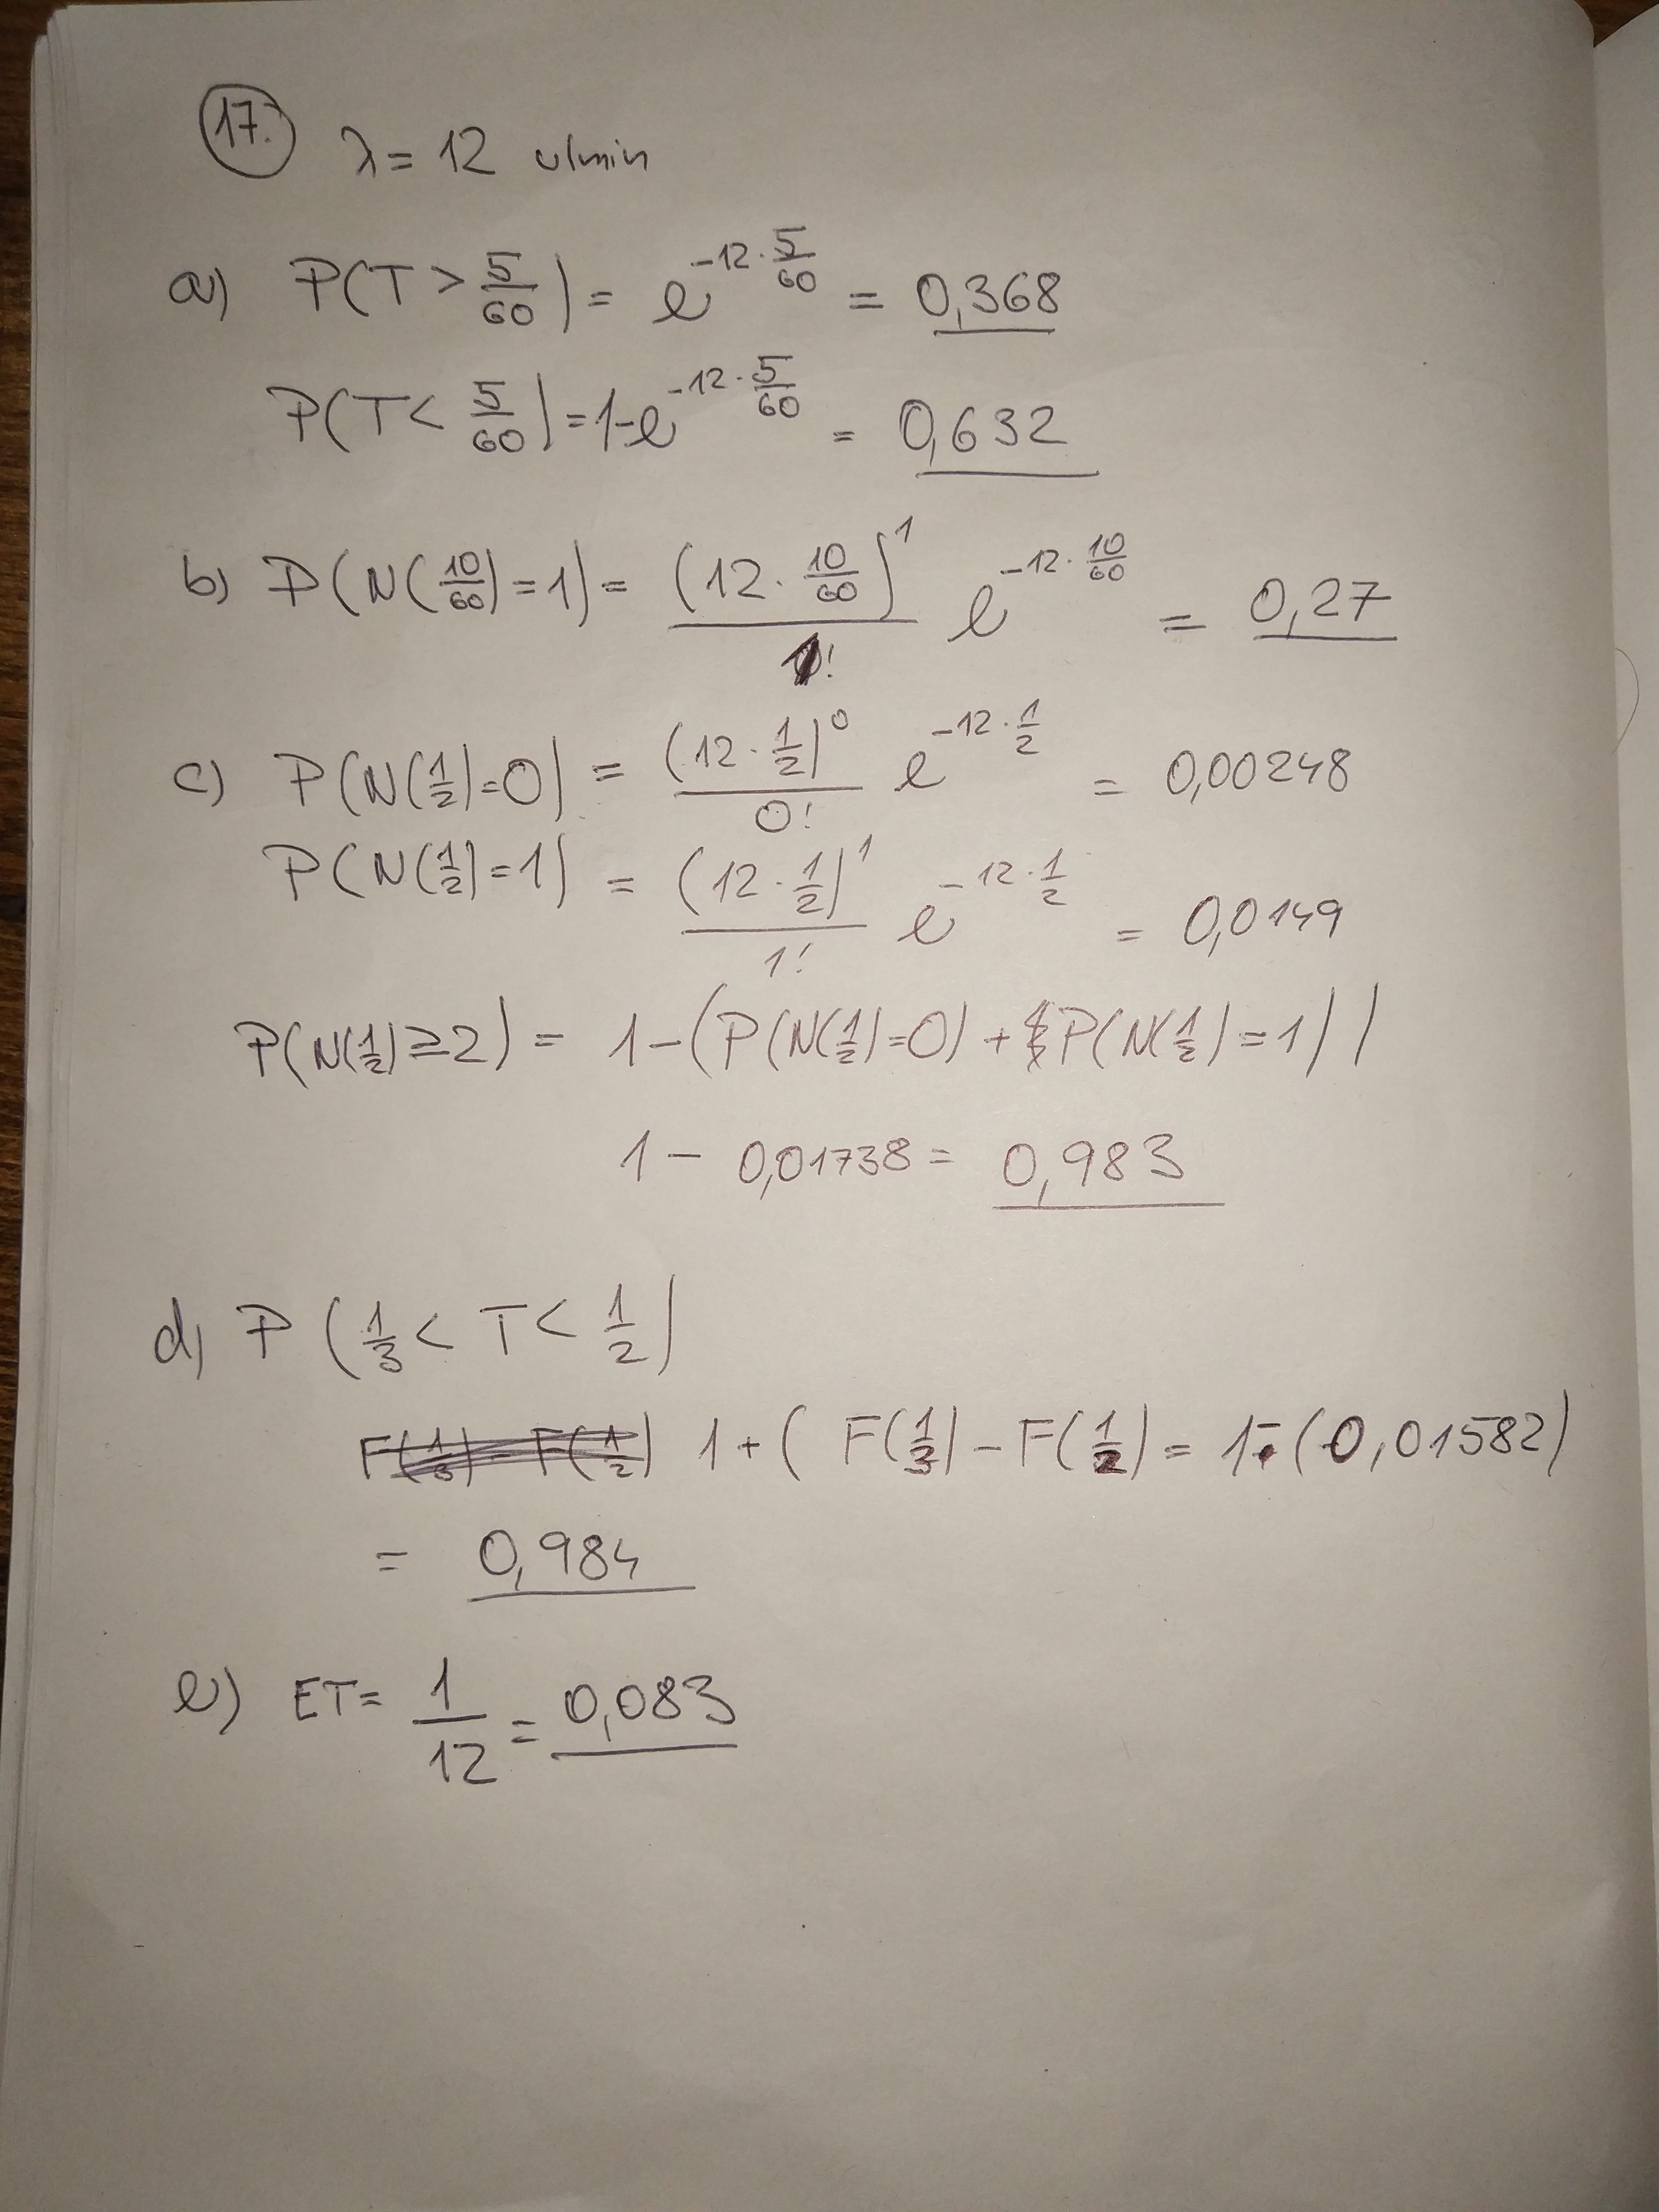 17. λ = 12 u/min
a) P(T > 5/60) = e^(-12·5/60) = 0,368
P(T < 5/60) = 1-e^(-12·5/60) = 0,632
b) P(N(10/60) = 1) = (12·10/60)^1 / 1! e^(-12·10/60) = 0,27
c) P(N(1/2) = 0) = (12·1/2)^0 / 0! e^(-12·1/2) = 0,00248
P(N(1/2) = 1) = (12·1/2)^1 / 1! e^(-12·1/2) = 0,0149
P(N(1/2) ≥ 2) = 1-(P(N(1/2)=0) + P(N(1/2) = 1))
1 - 0,01738 = 0,983
d) P (1/3 < T < 1/2)
F(1/3) - F(1/2) 1 + (F(1/3) - F(1/2) = 1-(0,01582)
= 0,984
e) ET = 1/12 = 0,083